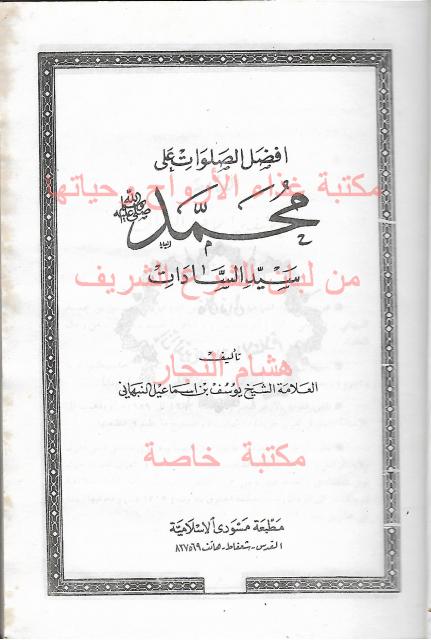 افضل الصلوات على
مكتبة غذاء الأرواح وحياتها
محمد ﷺ
من لباب الشرع الشريف
سيد السادات
تأليف
هشام النجار
العلامة الشيخ يوسف بن اسماعيل النبهاني
مكتبة خاصة
مطبعة مسودى الاسلامية
القدس - شعفاط - هاتف ٨٢٧٥٦٩